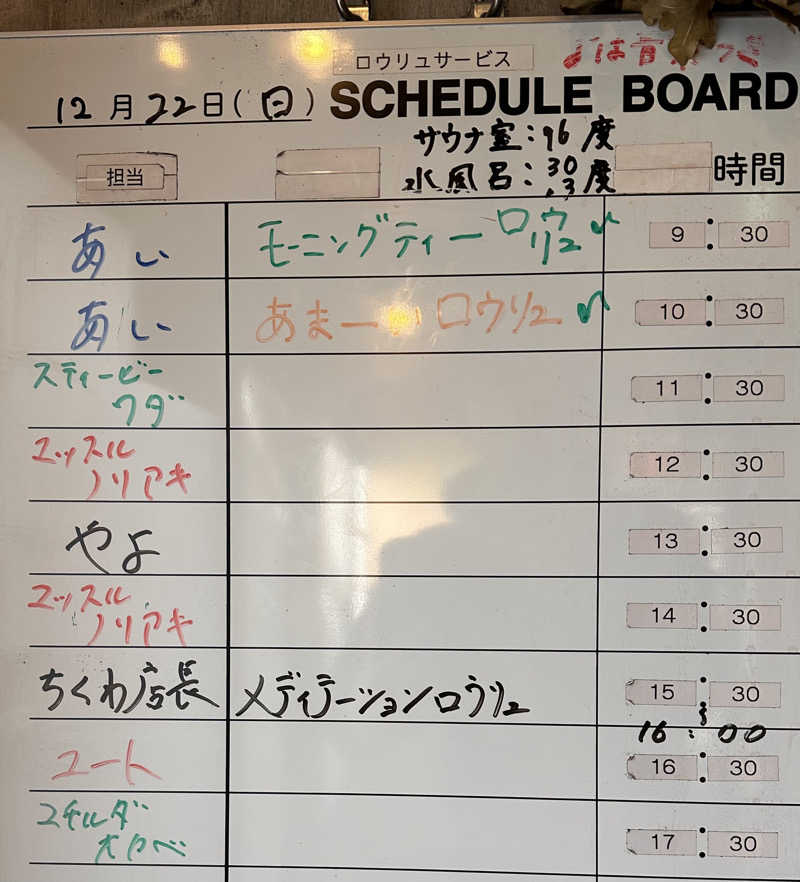 ロウリュサービス
12月22日(日) SCHEDULE BOARD
サウナ室:96度
水風呂:30
.3度
担当 時間
あい モーニングティーロウ
リュ 9:30
あい ロウリュ 10:30
スティービー
ワダ 11:30
マッスル
ノリアキ 12:30
やよ 13:30
マッスル
ノリアキ 14:30
ちくわ店長 メディテーションロウリュ 15:30
16:00
ユート 16:30
オカベ 17:30